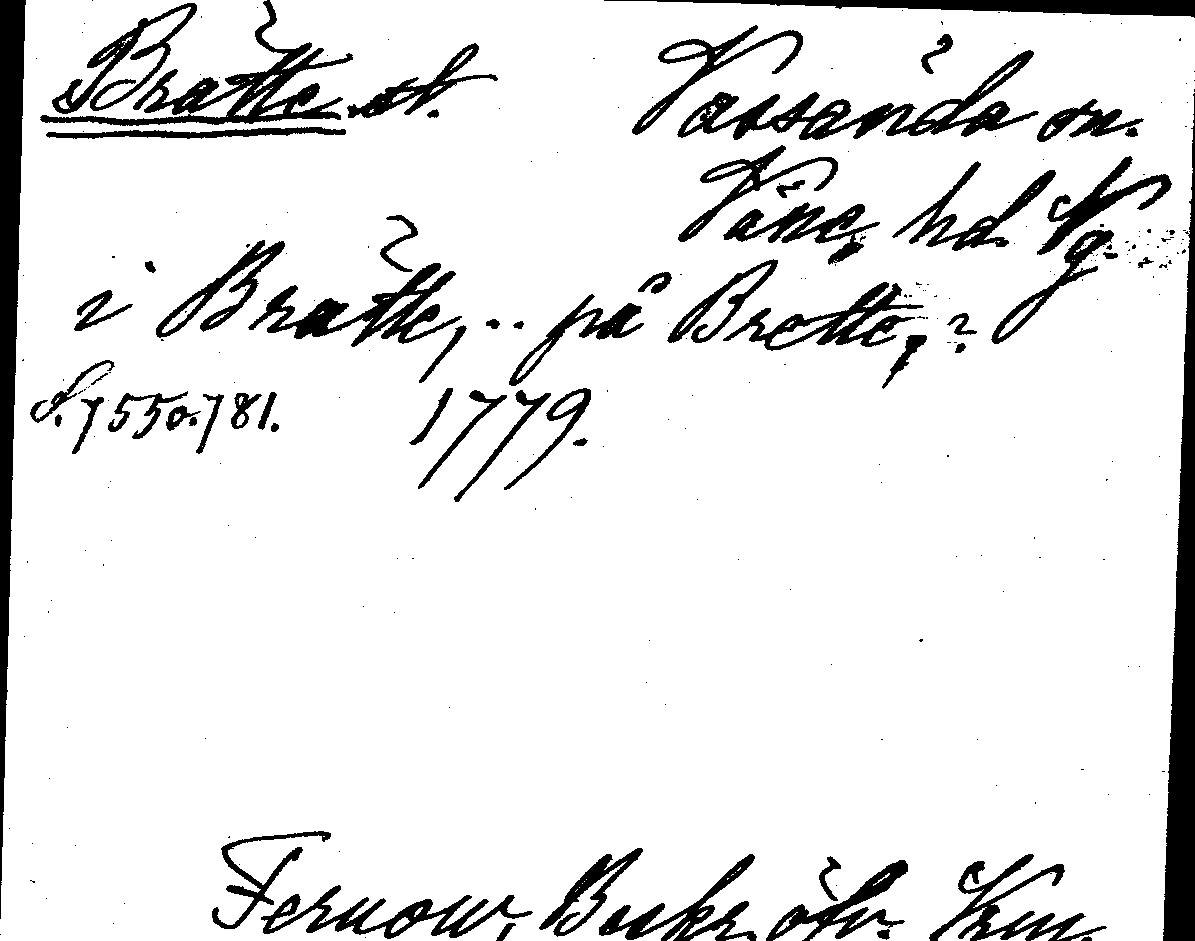 Brätte st. Vassända sn.
Väne hd. Vg.
i Brätte, .. på Brette, ?
S. 7550.781. 1779.
Fernow, Beskr. öfv. Vrm.